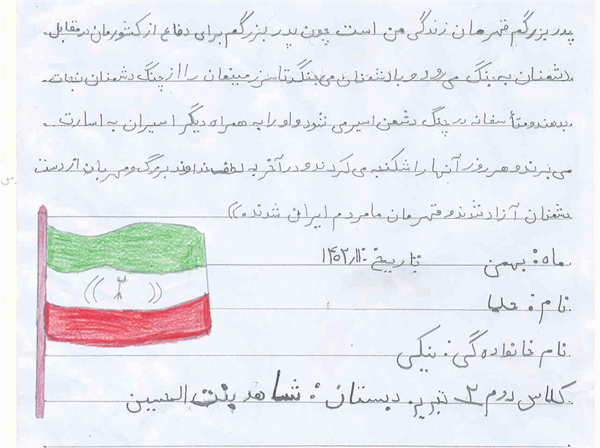 پدربزرگم قهرمان زندگی من است چون پدربزرگم برای دفاع از کشورمان در مقابل
دشمنان به جنگ می رود و با دشمنان می جنگد تا سرزمینمان را از چنگ دشمنان نجات
بدهند و متأسفانه در جنگ دشمن اسیر می شود و او را به همراه دیگر اسیران به اسارت
می برند و هر روز آنها را شکنجه می کردند و در آخر به لطف خداوند بزرگ و مهربان از دست
دشمنان آزاد شدند و قهرمان ما مردم ایران شدند))
ماه: بهمن تاریخ: ۱۴۰۲/۱۱
نام:
نام خانوادگی: نیکی
کلاس دوم ۲ دبستان: شاهد بنت الحسین